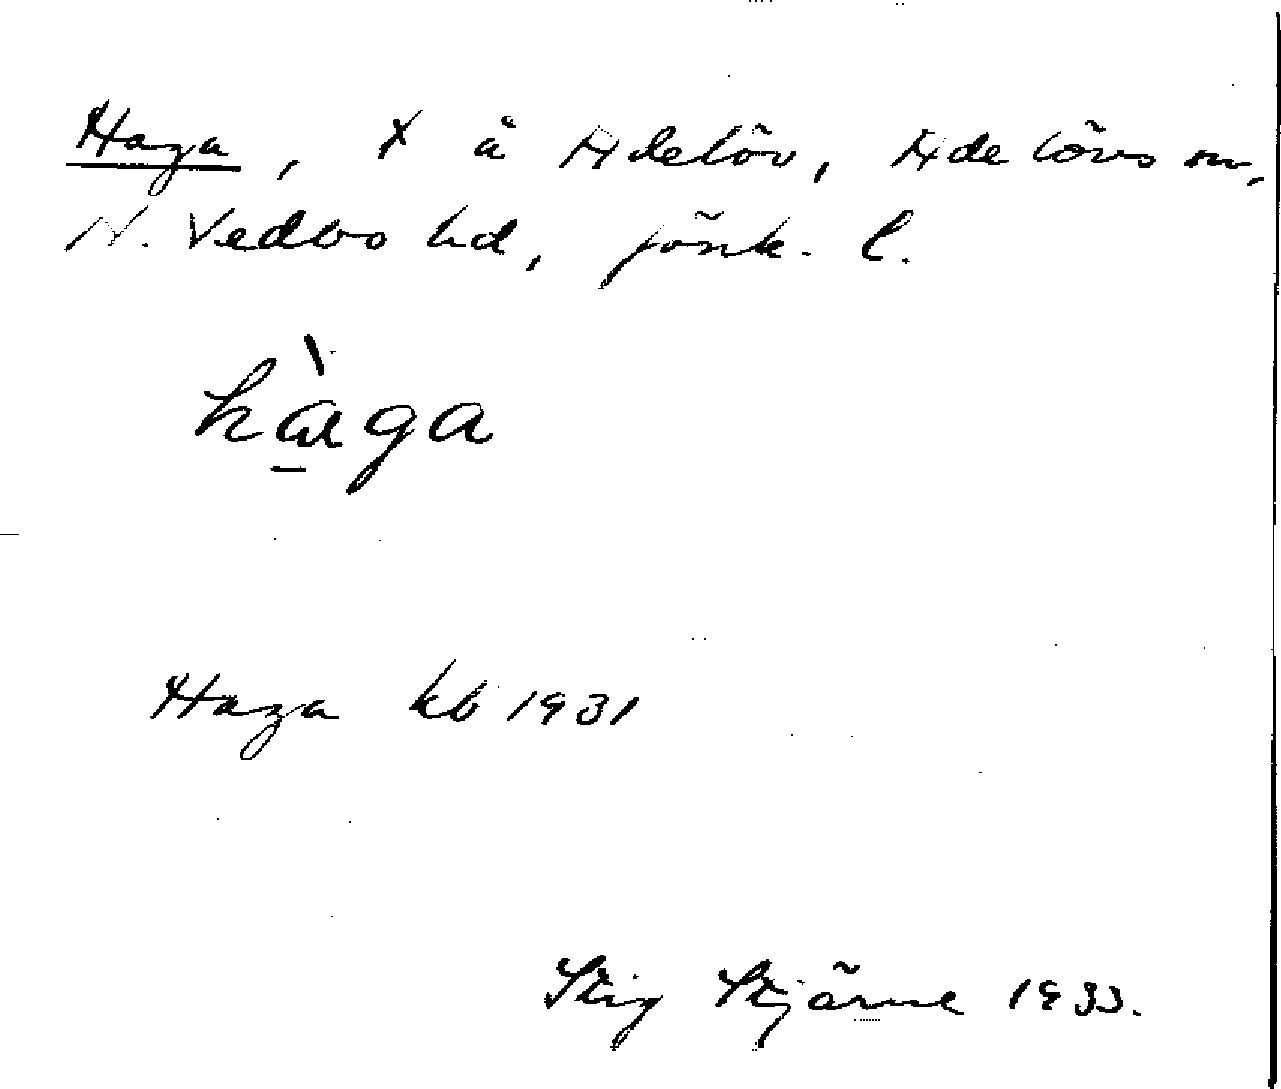 Haga, X å Adelöv, Adelövs sn,
N. Vedbo hd, Jönk. l.
hàga
Haga kb 1931
Stig Stjärne 1933.